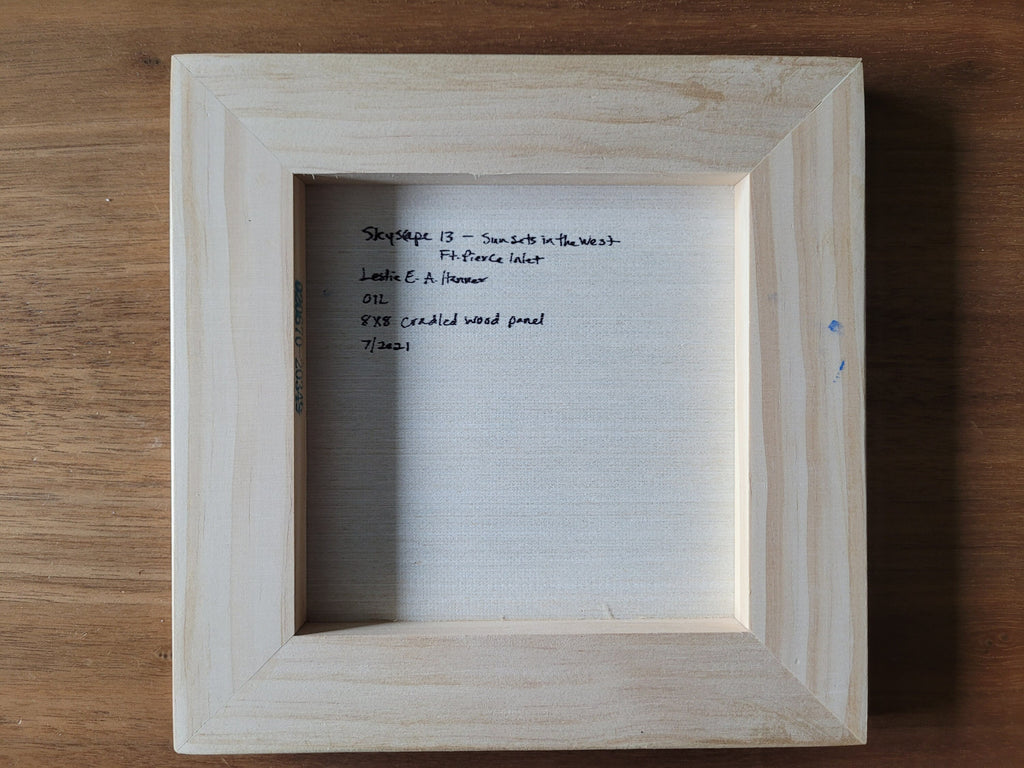 Skyscape 13 – Sunsets in the West
Ft. Pierce Inlet
Leslie E. A. Hanner
OIL
8x8 cradled wood panel
7/2021